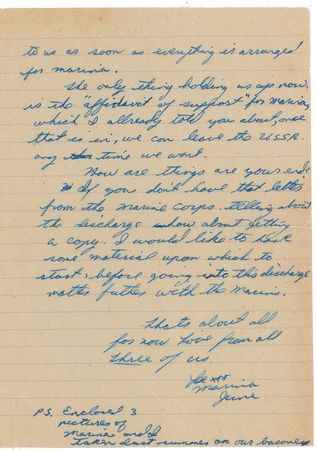 to us as soon as everything is arranged
for marina.
The only thing holding us up now,
is the "affidavit of support" for Marina,
which I allready told you about, once
that is in, we can leave the U.S.S.R.
any time we want.
How are things are your end?
If you don't have that letter
from the Marine Corps. telling about
the discharge how about getting
a copy. I would like to have
some material upon which to
start, before going into this discharge
matter futher with the Marines.
Thats about all
for now Love from all
three of us.
Lee xxx
Marina
June
P.S. Enclosed 3
pictures of
Marina and I
taken last summer on our balcone